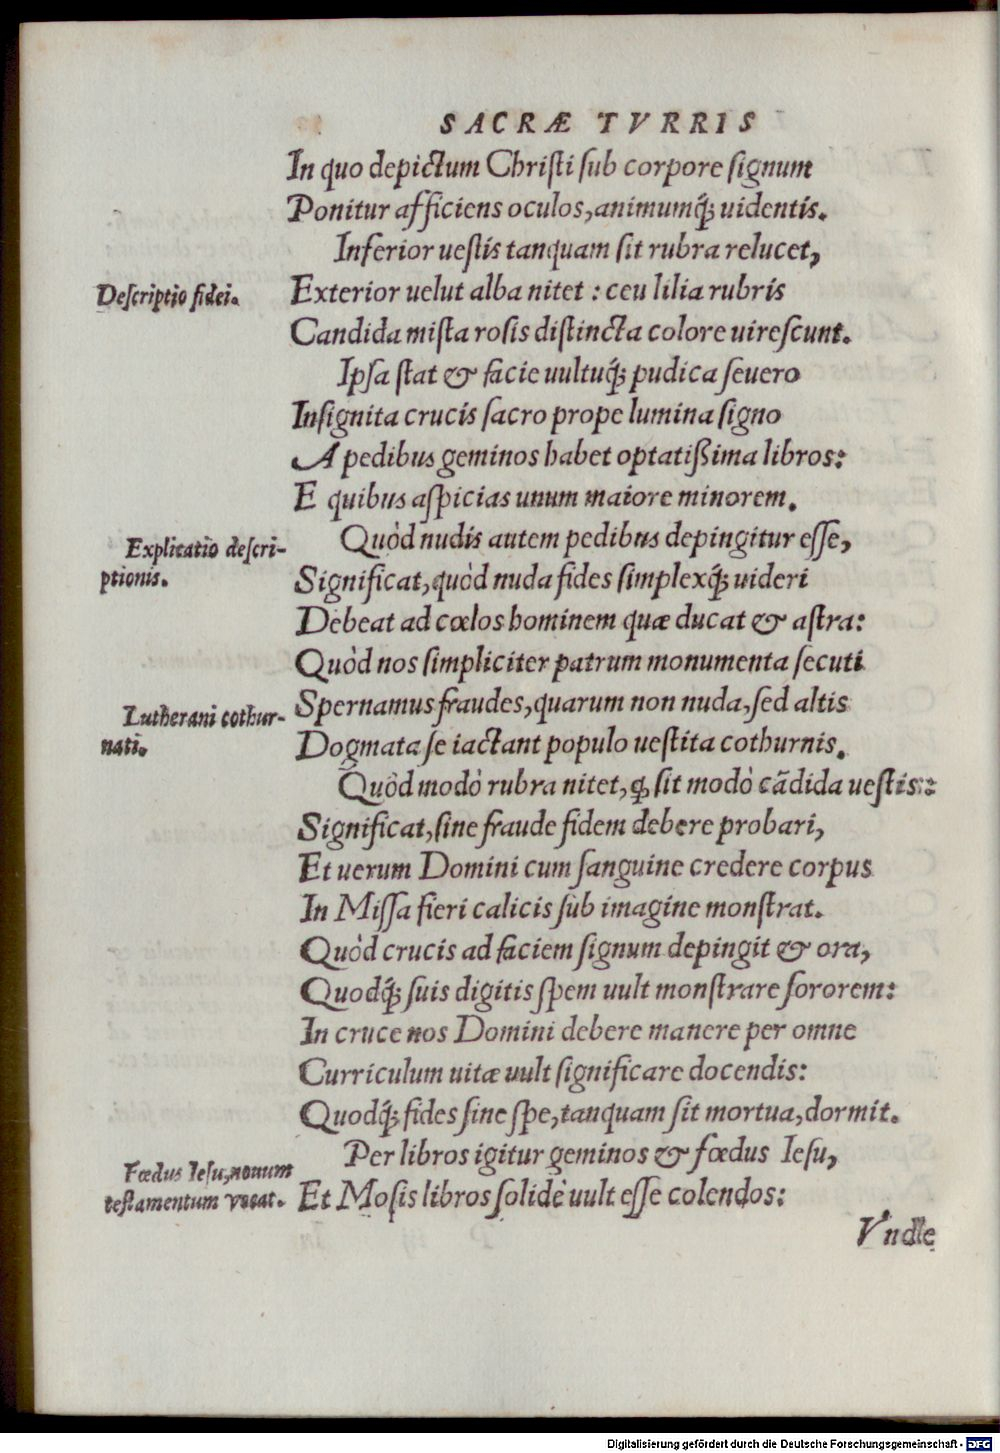 SACRÆ TVRRIS
In quo depictum Christi sub corpore signum
Ponitur afficiens oculos, animumq́; uidentis.
Inferior uestis tanquam sit rubra relucet,
Descriptio fidei.
Exterior uelut alba nitet : ceu lilia rubris
Candida mista rosis distincta colore uirescunt.
Ipsa stat & facie uultuq́; pudica seuero
Insignita crucis sacro prope lumina signo
A pedibus geminos habet optatißima libros:
E quibus aspicias unum maiore minorem.
Explicatio descri-
ptionis.
Quòd nudis autem pedibus depingitur esse,
Significat, quòd nuda fides simplexq́; uideri
Debeat ad cœlos hominem quæ ducat & astra:
Quòd nos simpliciter patrum monumenta secuti
Lutherani cothur-
nati.
Spernamus fraudes, quarum non nuda, sed altis
Dogmata se iactant populo uestita cothurnis.
Quòd modò rubra nitet, ꝙ sit modò cãdida uestis:
Significat, sine fraude fidem debere probari,
Et uerum Domini cum sanguine credere corpus
In Missa fieri calicis sub imagine monstrat.
Quòd crucis ad faciem signum depingit & ora,
Quodq́; suis digitis spem uult monstrare sororem:
In cruce nos Domini debere manere per omne
Curriculum uitæ uult significare docendis:
Quodq́; fides sine spe, tanquam sit mortua, dormit.
Per libros igitur geminos & fœdus Iesu,
Fœdus Iesu, nouum
testamentum vocat.
Et Mosis libros solidè uult esse colendos:
Vnde
Digitalisierung gefördert durch die Deutsche Forschungsgemeinschaft - DFG